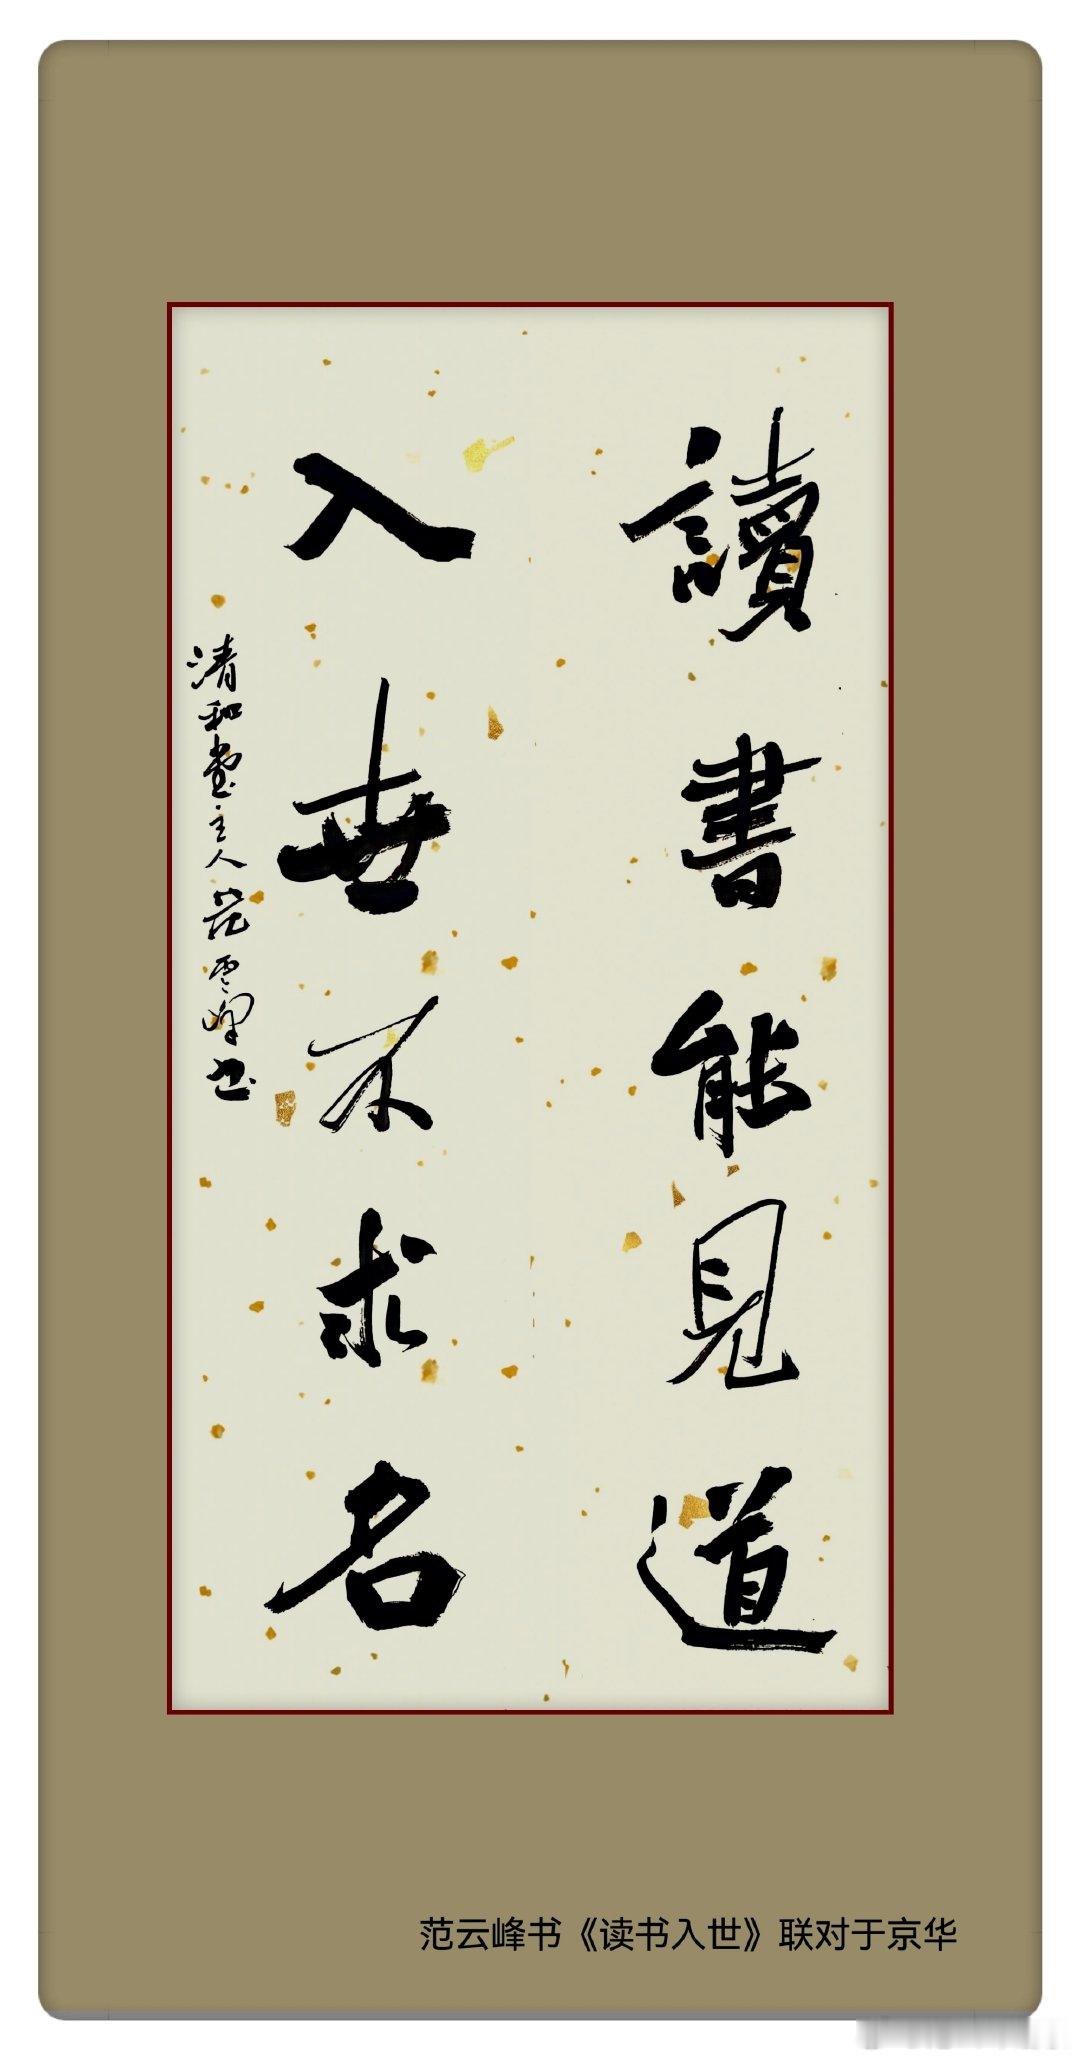 讀書能見道
入世不求名
清和堂主人范雲峰书
范云峰书《读书入世》联对于京华